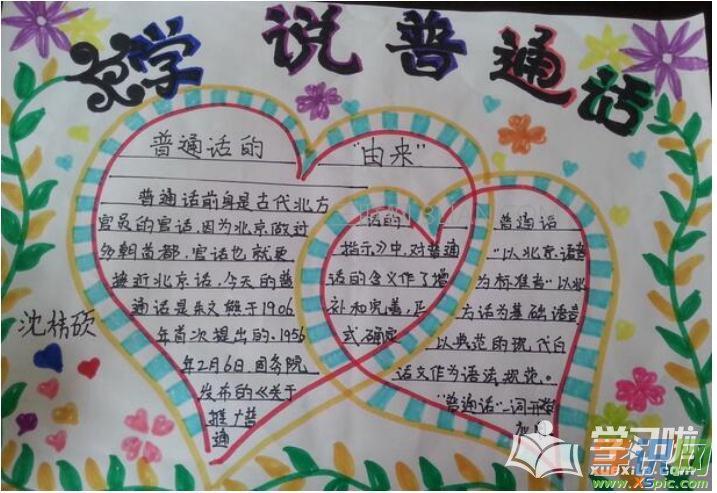 学说普通话
普通话的
"由来"
普通话前身是古代北方
官员的官话,因为北京做过
多朝首都,官话也就更
接近北京话,今天的普
通话是朱文熊于1906
年首次提出的,1956
年2月6日,国务院
发布的《关于
推广普
通
话的
指示》中,对普通
话的含义作了增
补和完善,正
式确定
普通话
"以北京语音
为标准音"以北
方话为基础语音
以典范的现代白
话文作为语法规范。
"普通话"一词开
沈
学习啦
www.xuexila.com
www.XSpic.com